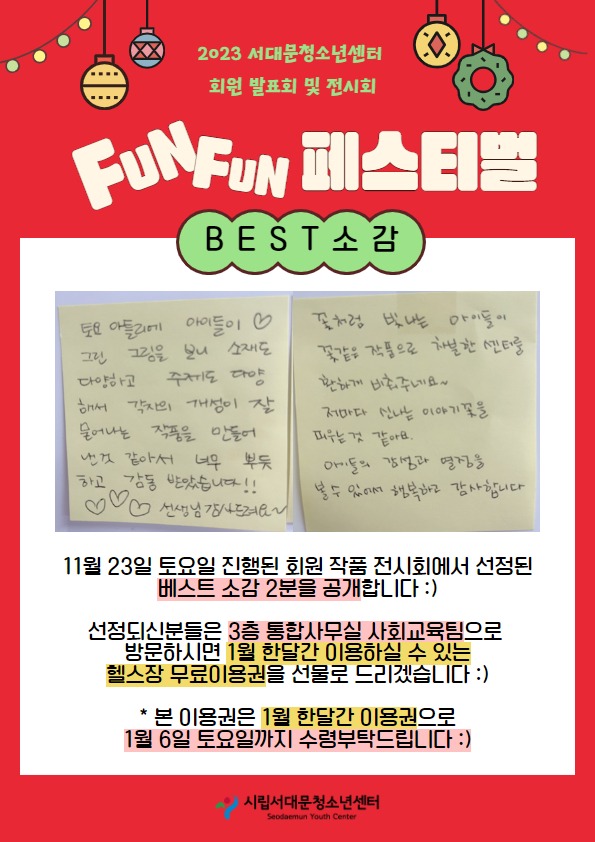 2023 서대문청소년센터
회원 발표회 및 전시회
FUNFUN 페스티벌
BEST소감
토요 아틀리에 아이들이 ♡
그린 그림을 보니 소재도
다양하고 주제도 다양
해서 각자의 개성이 잘
묻어나는 작품을 만들어
낸것 같아서 너무 뿌듯
하고 감동 받았습니다!!
♡♡♡ 선생님 감사드려요~
꽃처럼 빛나는 아이들이
꽃같은 작품으로 차분한 센터를
환하게 비춰주네요~
저마다 신나는 이야기꽃을
피우는것 같아요.
아이들의 감성과 열정을
볼수 있어서 행복하고 감사합니다
11월 23일 토요일 진행된 회원 작품 전시회에서 선정된
베스트 소감 2분을 공개합니다 :)
선정되신분들은 3층 통합사무실 사회교육팀으로
방문하시면 1월 한달간 이용하실 수 있는
헬스장 무료이용권을 선물로 드리겠습니다 :)
* 본 이용권은 1월 한달간 이용권으로
1월 6일 토요일까지 수령부탁드립니다 :)
시립서대문청소년센터
Seodaemun Youth Center